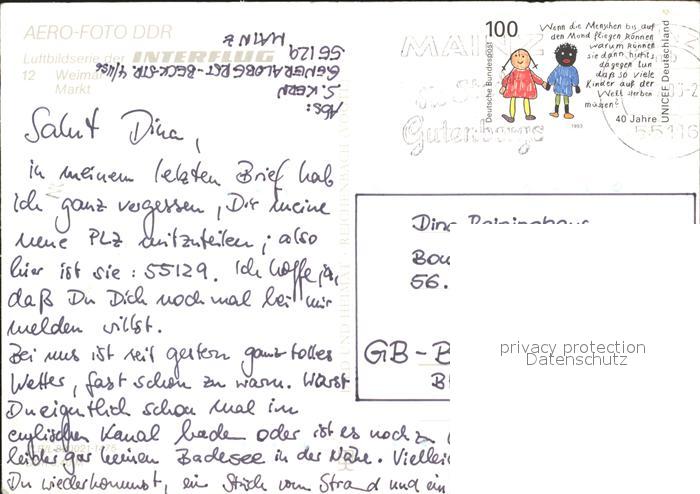 AERO-FOTO DDR
Luftbildserie der INTERFLUG
12 Weimar
Markt
Abs:
S. KERN
GENERALOBERST-BECK-STR
55129
MAINZ
Salut Dina,
in meinem letzten Brief hab
ich ganz vergessen, Dir meine
neue PLZ mitzuteilen; also
hier ist sie: 55129. Ich hoffe ja,
daß Du Dich noch mal bei mir
melden willst.
Bei uns ist seit gestern ganz tolles
Wetter, fast schon zu warm. Warst
Du eigentlich schon mal im
englischen Kanal baden oder ist es noch zu
leider gar keinen Badesee in der Nähe. Vielleic
Du wiederkommst, ein Stück vom Strand und ein
100
Deutsche Bundespost
Wenn die Menschen bis auf
den Mond fliegen können
warum können
sie dann nichts
dagegen tun
daß so viele
Kinder auf der
Welt sterben
müssen?
1993
40 Jahre
UNICEF Deutschland
MAINZ
Gutenbergs
55116
Dina Reininghaus
Bou
56.
GB-B
privacy protection
Datenschutz